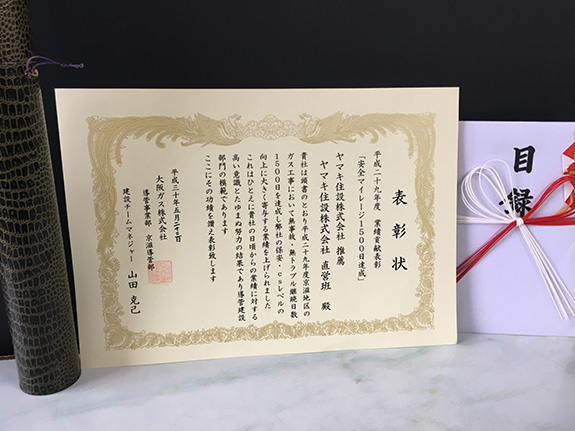 表彰状
平成二十九年度　業績貢献表彰
「安全マイレージ1500日達成」
ヤマキ住設株式会社　推薦
ヤマキ住設株式会社　直営班　殿
貴社は頭書のとおり平成二十九年度京滋地区の
ガス工事において無事故・無トラブル継続日数
1500日を達成し弊社の保安・csレベルの
向上に大きく寄与する業績を上げられました
これはひとえに貴社の日頃からの業績に対する
高い意識とたゆまぬ努力の結果であり導管建設
部門の模範であります
ここにその功績を讃え表彰致します
平成三十年五月二十二日
大阪ガス株式会社
導管事業部　京滋導管部
建設チームマネジャー　山田　克己
目録